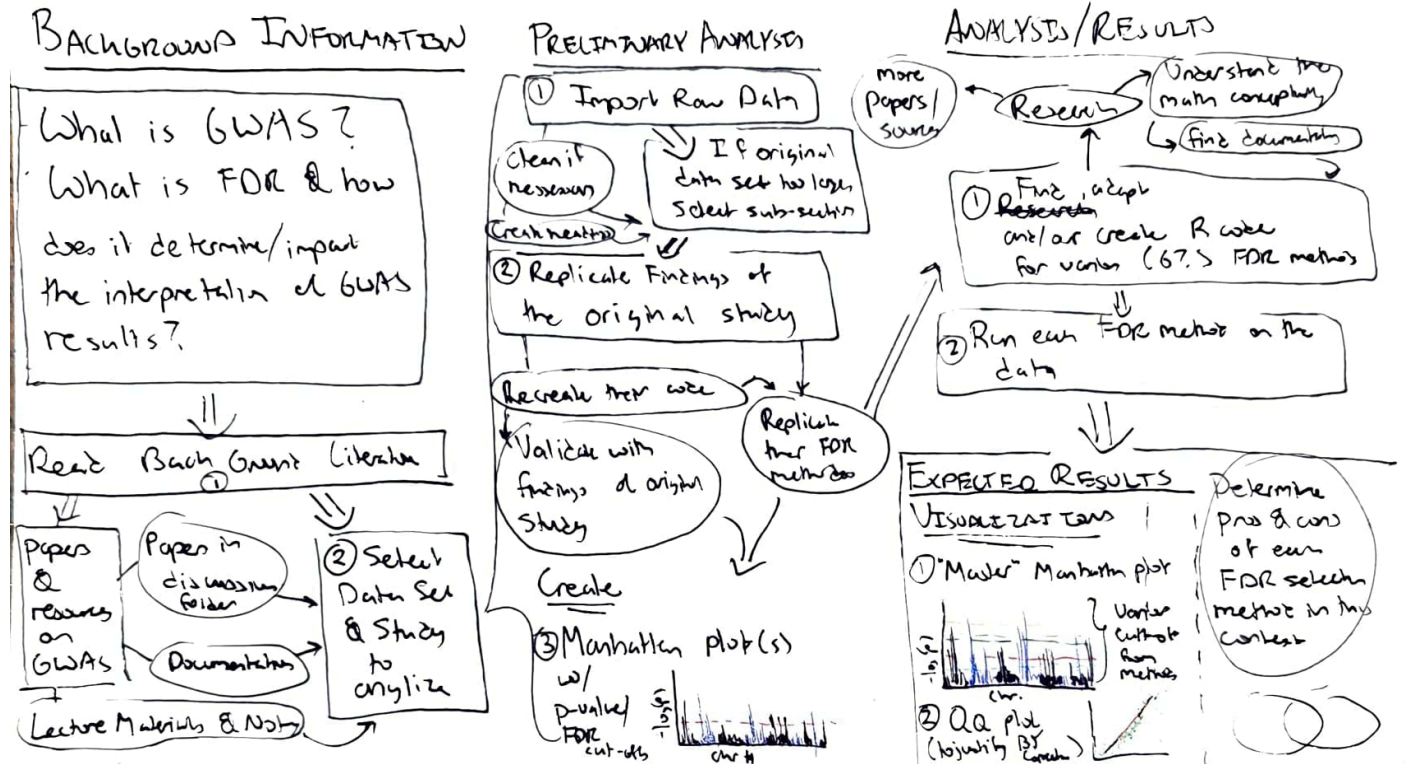 BACKGROUND INFORMATION
What is GWAS?
What is FDR & how
does it determine/impact
the interpretation of GWAS
results?
Read Background Literature
①
Papers
&
resources
on
GWAS
Papers in
discussion
folder
Documentation
Lecture Materials & Notes
② Select
Data Set
& Study
to
anylize
PRELIMINARY ANALYSIS
① Import Raw Data
Clean if
nessesary
If original
data set too large,
select sub-section
② Replicate Findings of
the original study
Recreate their code
Validate with
findings of original
study
Replicate
their FDR
methods
Create
③ Manhattan plot(s)
w/
p-value/
FDR
cut-offs
-log(p)
chr #
ANALYSIS/RESULTS
more
papers/
sources
Research
Understand the
math conceptually
find documentation
① Find, adapt
and/or create R code
for various (6?) FDR methods
② Run each FDR method on the
data
EXPECTED RESULTS
VISUALIZATIONS
① "Master" Manhattan plot
-log(p)
chr.
Various
cutoffs
from
methods
② QQ plot
(to justify BY
Determine
pros & cons
of each
FDR selection
method in this
context